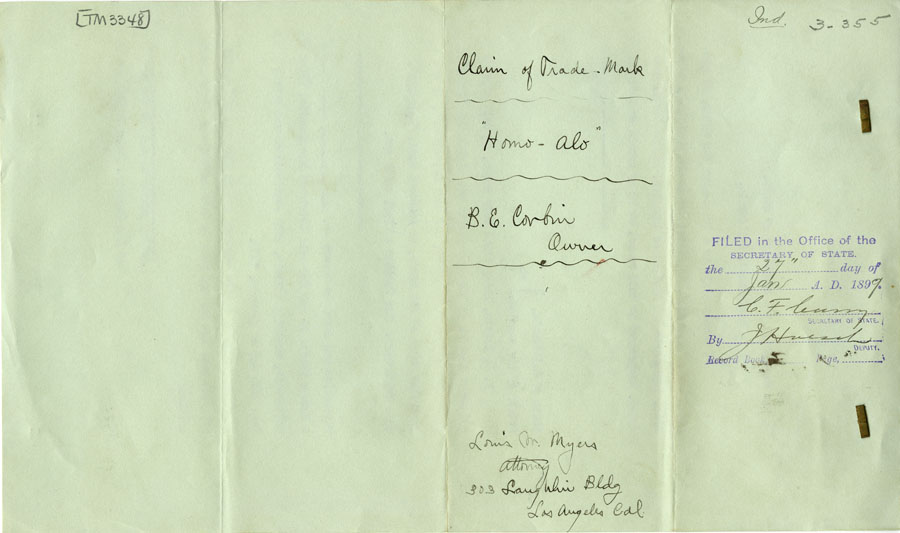 [TM3348]
Claim of Trade-Mark
"Homo-Alo"
B. E. Corbin
Owner
Louis M. Myers
Attorney
303 Laughlin Bldg
Los Angeles Cal.
Ind. 3-355
FILED in the Office of the
SECRETARY OF STATE.
the 27" day of
Jan A. D. 1897.
C. F. Curry
SECRETARY OF STATE.
By J Hoesch
DEPUTY.
Record Book Page